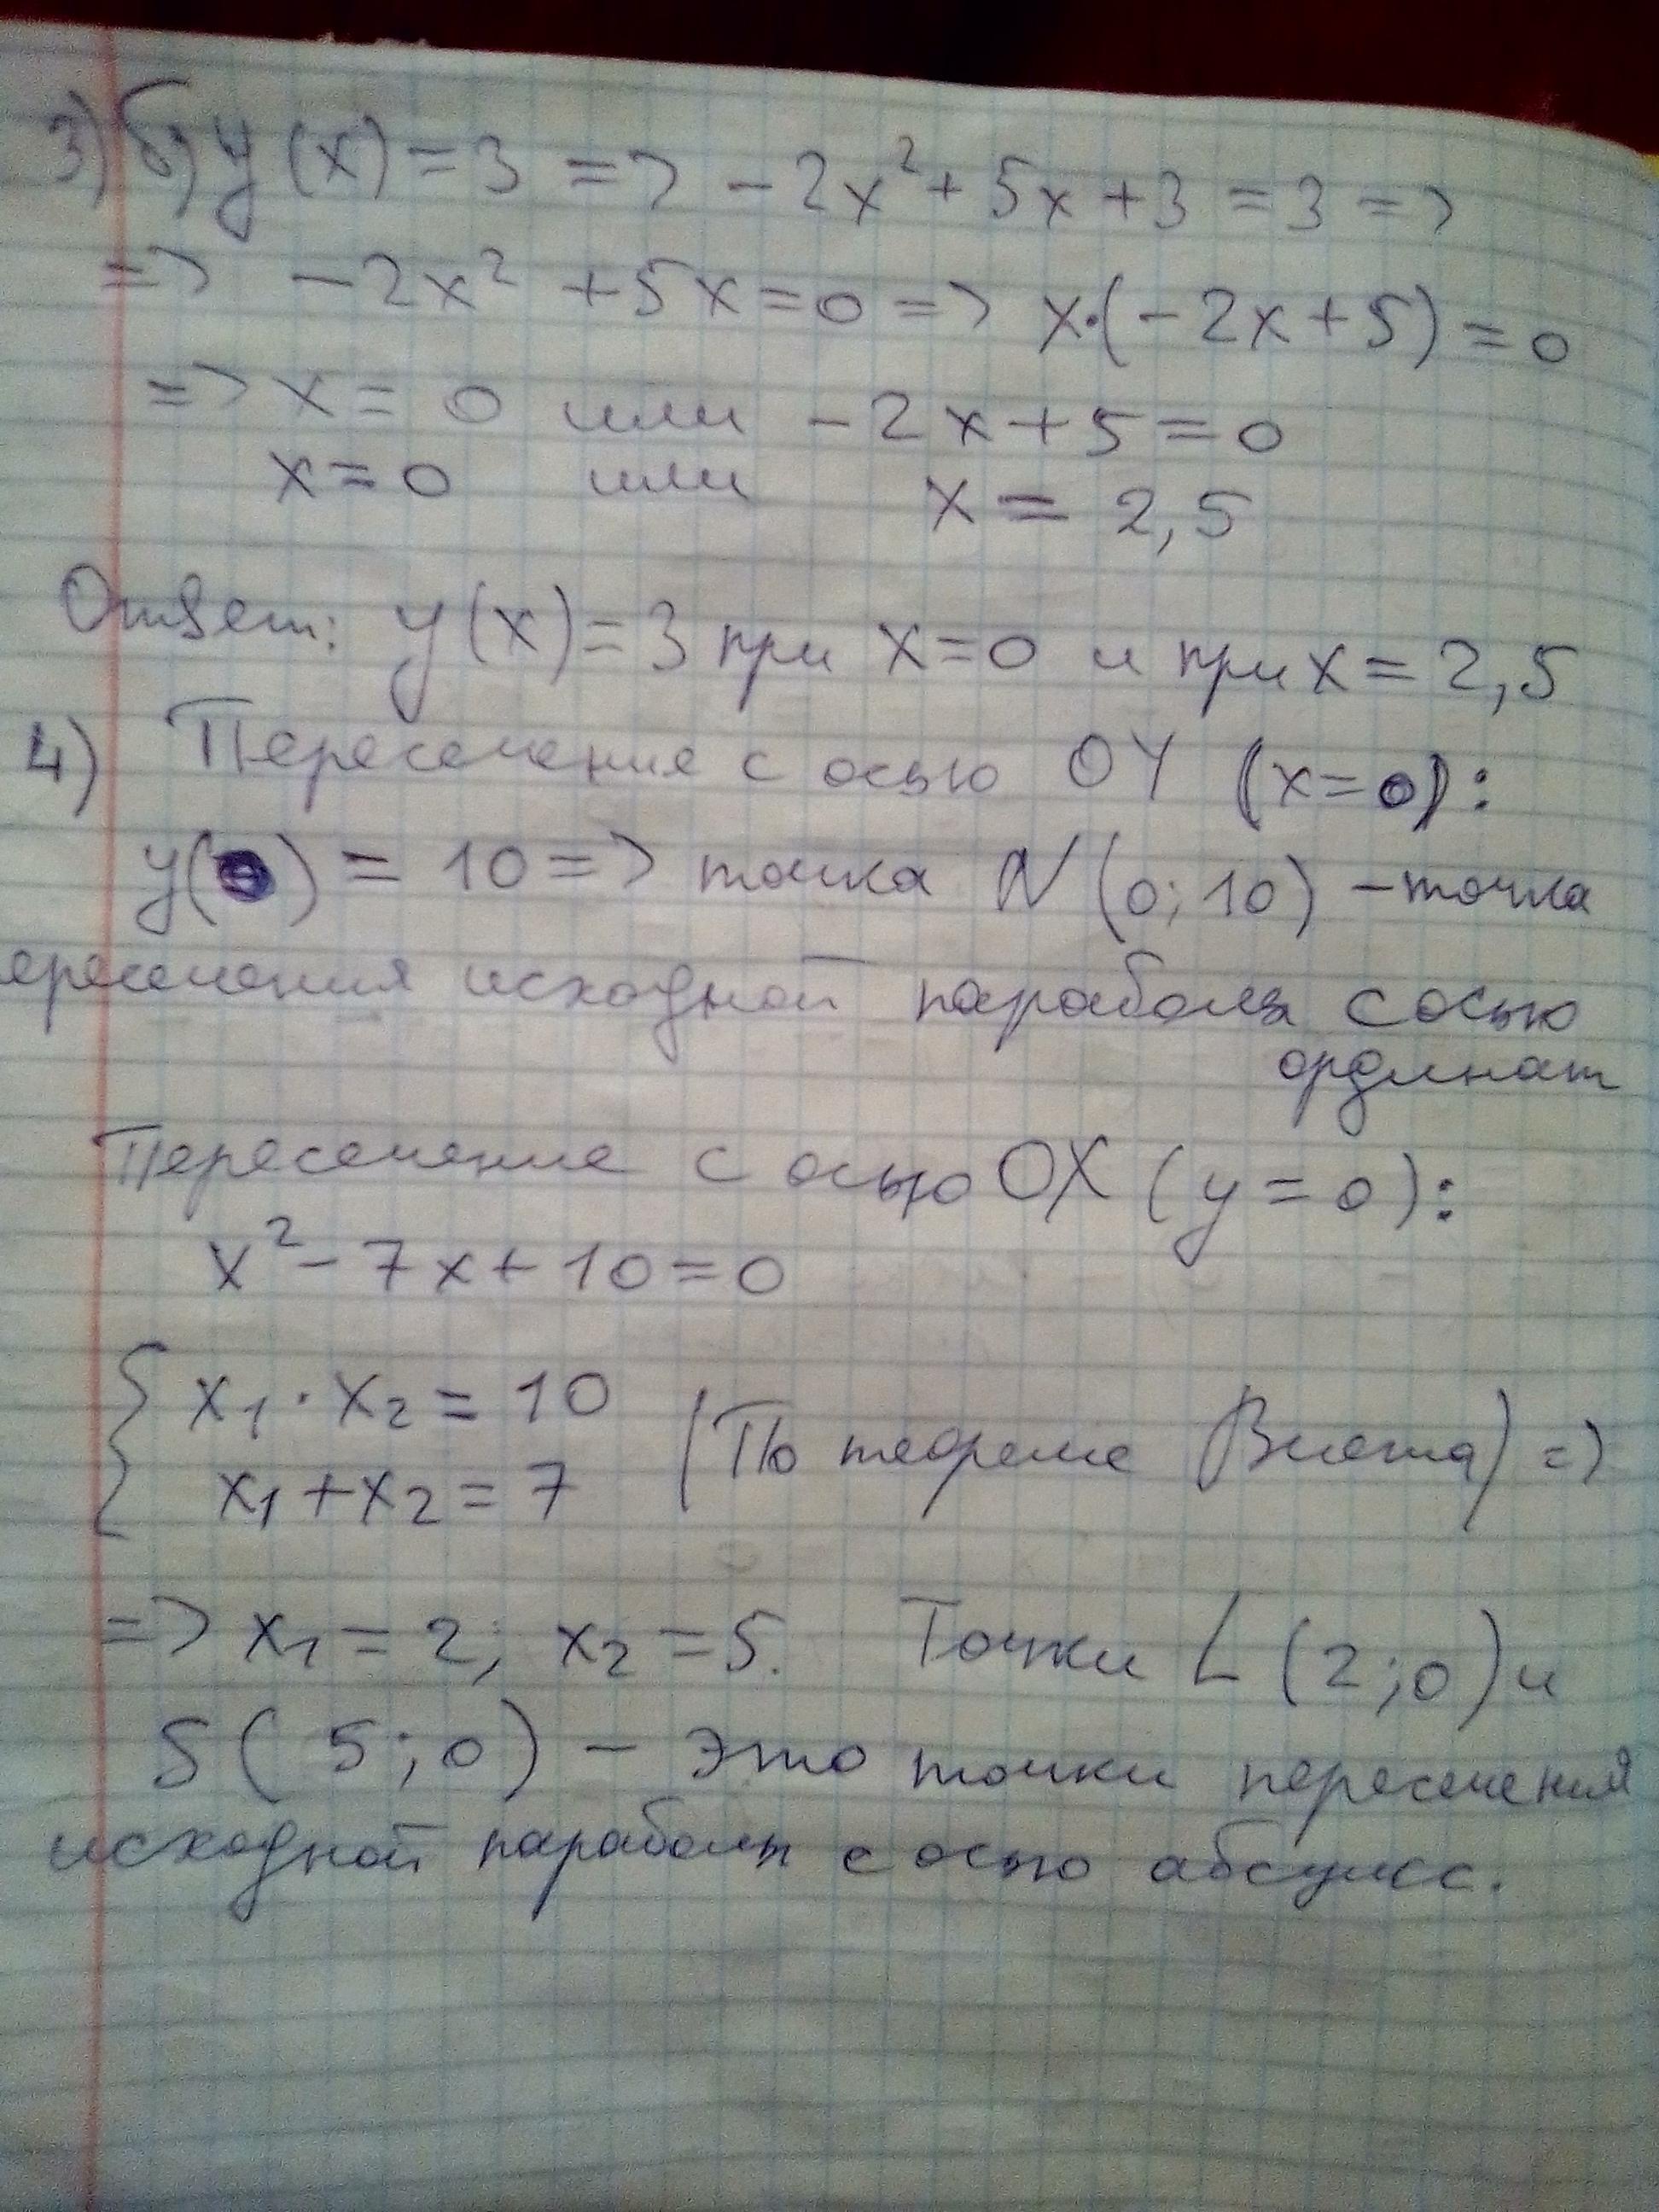 3) б) y(x) = 3 => -2x² + 5x + 3 = 3 =>
=> -2x² + 5x = 0 => x·(-2x + 5) = 0
=> x = 0 или -2x + 5 = 0
x = 0 или x = 2,5
Ответ: y(x) = 3 при x = 0 и при x = 2,5
4) Пересечение с осью OY (x = 0):
y(0) = 10 => точка N (0; 10) - точка
ересечения исходной параболы с осью
ординат
Пересечение с осью OX (y = 0):
x² - 7x + 10 = 0
{ x₁ · x₂ = 10
x₁ + x₂ = 7 (По теореме Виета) =>
=> x₁ = 2; x₂ = 5. Точки L (2; 0) и
S (5; 0) - это точки пересечения
исходной параболы с осью абсцисс.